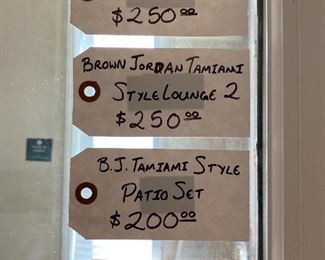 $250.00
BROWN JORDAN TAMIAMI
STYLE LOUNGE 2
$250.00
B.J. TAMIAMI STYLE
PATIO SET
$200.00